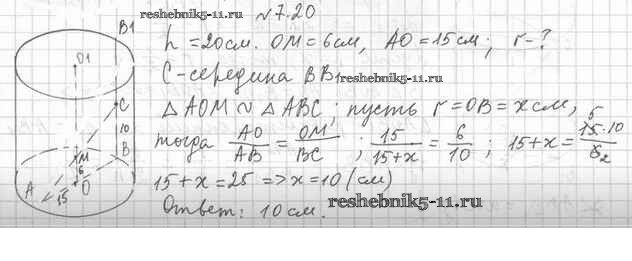 reshebnik5-11.ru
№ 7.20
h = 20 см. OM = 6 см, AO = 15 см; r - ?
C - середина BB₁
reshebnik5-11.ru
△ AOM ~ △ ABC; пусть r = OB = x см,
тогда AO/AB = OM/BC; 15/(15+x) = 6/10; 15+x = 15·10/6
5
2
15 + x = 25 => x = 10 (см)
Ответ: 10 см.
reshebnik5-11.ru
B1
O1
C
10
B
M
6
A
15
O